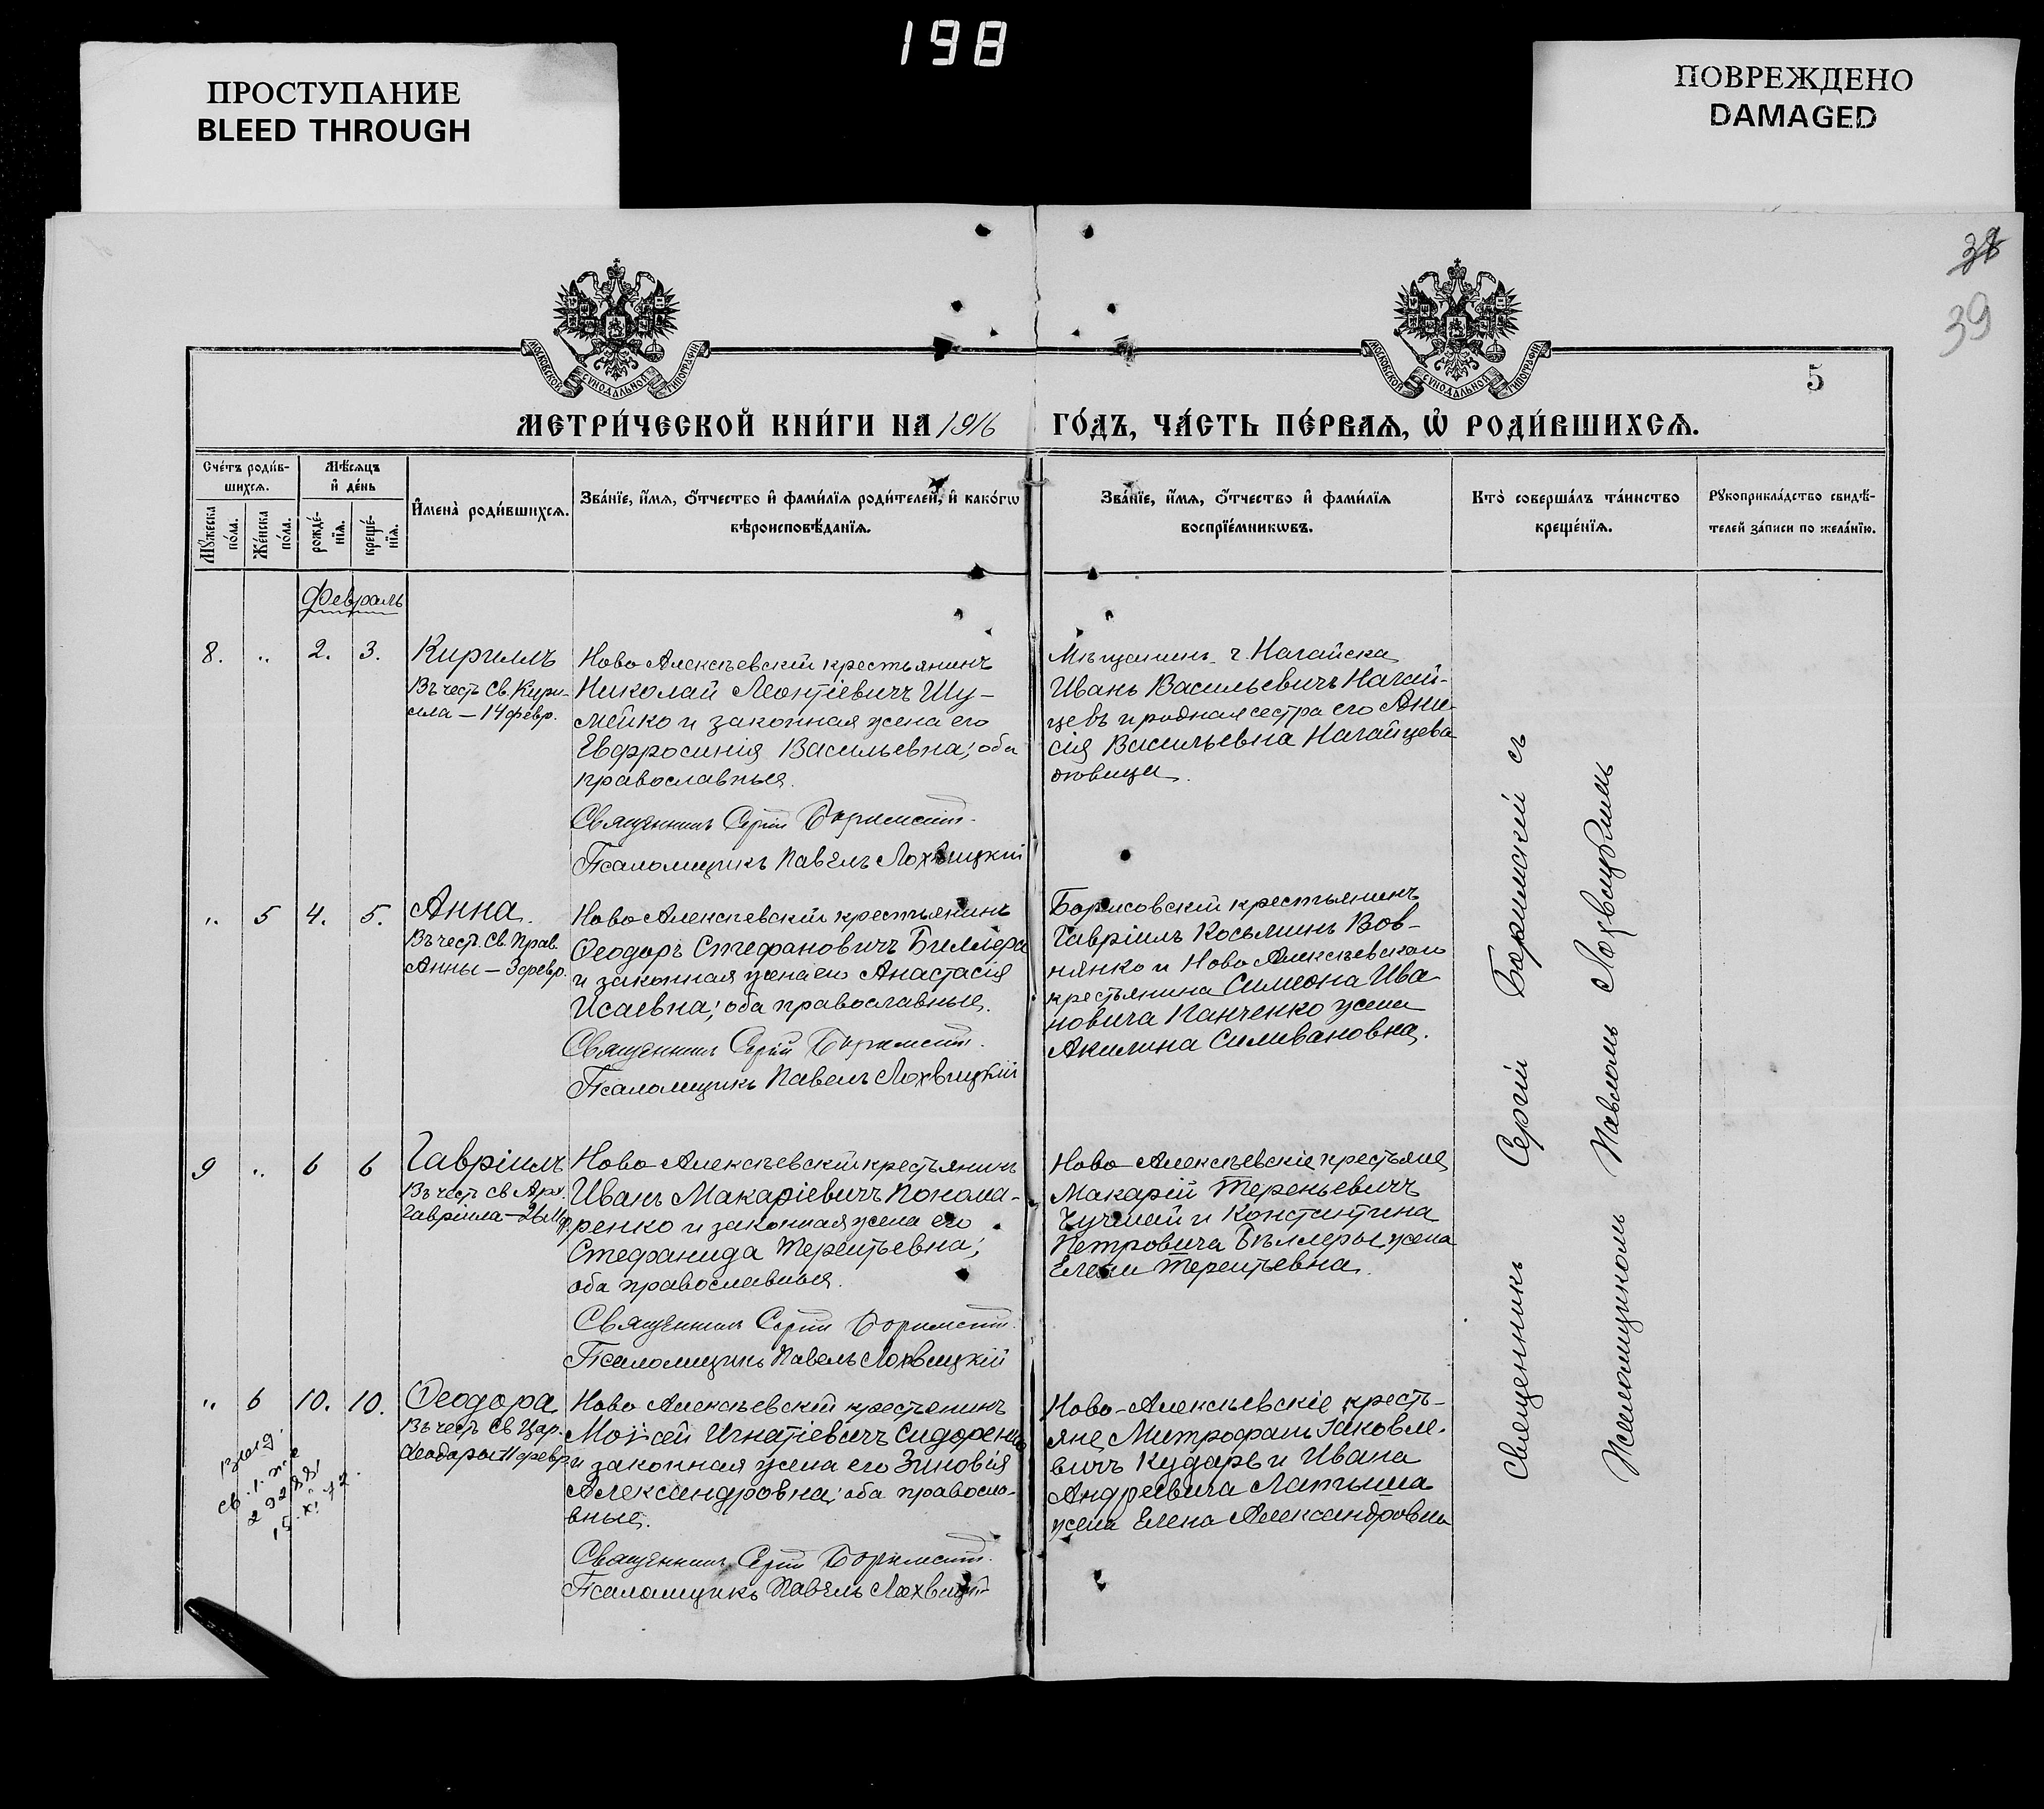 198
ПРОСТУПАНИЕ
BLEED THROUGH
ПОВРЕЖДЕНО
DAMAGED
38
39
МОСКОВСКОЙ СѴНОДАЛЬНОЙ ТИПОГРАФІИ
МОСКОВСКОЙ СѴНОДАЛЬНОЙ ТИПОГРАФІИ
5
МЕТРИ́ЧЕСКОЙ КНИ́ГИ НА 1916 ГО́ДЪ, ЧА́СТЬ ПЕ́РВАѦ, Ѽ РОДИ́ВШИХСѦ.
Сче́тъ роди́в-
шихсѧ.
Мѣ́сѧцъ
и҆ де́нь
Мꙋ́жеска
по́ла.
Же́нска
по́ла.
рожде́-
нїѧ.
креще́-
нїѧ.
И҆мена̀ роди́вшихсѧ.
Зва́нїе, и҆́мѧ, ѻ҆́тчество и҆ фами́лїѧ роди́телей, и҆ како́гѡ
вѣроисповѣ́данїѧ.
Зва́нїе, и҆́мѧ, ѻ҆́тчество и҆ фами́лїѧ
воспрїе́мникѡвъ.
Кто̀ соверша́лъ та́инство
креще́нїѧ.
Рꙋкоприкла́дство свидѣ́-
телей за́писи по жела́нїю.
Февраль
8. „ 2. 3.
Кириллъ
Въ честь Св. Кири-
лла – 14 февр.
Ново Алексѣевскій крестьянинъ
Николай Леонтіевичъ Шу-
мейко и законная жена его
Евфросинія Васильевна; оба
православные.
Священникъ Сергій
Псаломщикъ Павелъ Лохвицкій
Мѣщанинъ г. Нагайска
Иванъ Васильевичъ Нагай-
цевъ и родная сестра его Ани-
сія Васильевна Нагайцева
„ 5 4. 5.
Анна.
Въ честь Св. Прав.
Анны – 3 февр.
Ново Алексѣевскій крестьянинъ
Ѳеодоръ Стефановичъ Биллера
и законная жена его Анастасія
Исаевна; оба православные.
Священникъ Сергій
Псаломщикъ Павелъ Лохвицкій
Борисовскій крестьянинъ
Гавріилъ Косьминъ Вов-
нянко и Ново Алексѣевскаго
крестьянина Симеона Ива
новича Панченко жена
Акилина Силивановна.
9 „ 6 6
Гавріилъ
Въ честь Св Арх.
Гавріила – 26 Мр.
Ново-Алексѣевскій крестьянинъ
Иванъ Макаріевичъ Понома-
ренко и законная жена его
Стефанида Терентьевна;
оба православные.
Священникъ Сергій
Псаломщикъ Павелъ Лохвицкій
Ново-Алексѣевскіе крестьяне
Макарій Терентьевичъ
и Константина
Петровича Биллеры жена
Елена Терентьевна.
„ 6 10. 10.
Ѳеодора
Въ честь Св Цар.
Ѳеодоры – 11 февр.
Ново Алексѣевскій крестьянинъ
Моѵсей Игнатіевичъ Сидоренко
и законная жена его Зиновія
Александровна; оба правосла-
вные.
Священникъ Сергій
Псаломщикъ Павелъ Лохвицкій
Ново-Алексѣевскіе кресть-
яне Митрофанъ Іаковле-
вичъ Кударь и Ивана
Андреевича Латыша
жена Елена Александровна
Священникъ Сергій съ
Псаломщикомъ Павломъ Лохвицкимъ